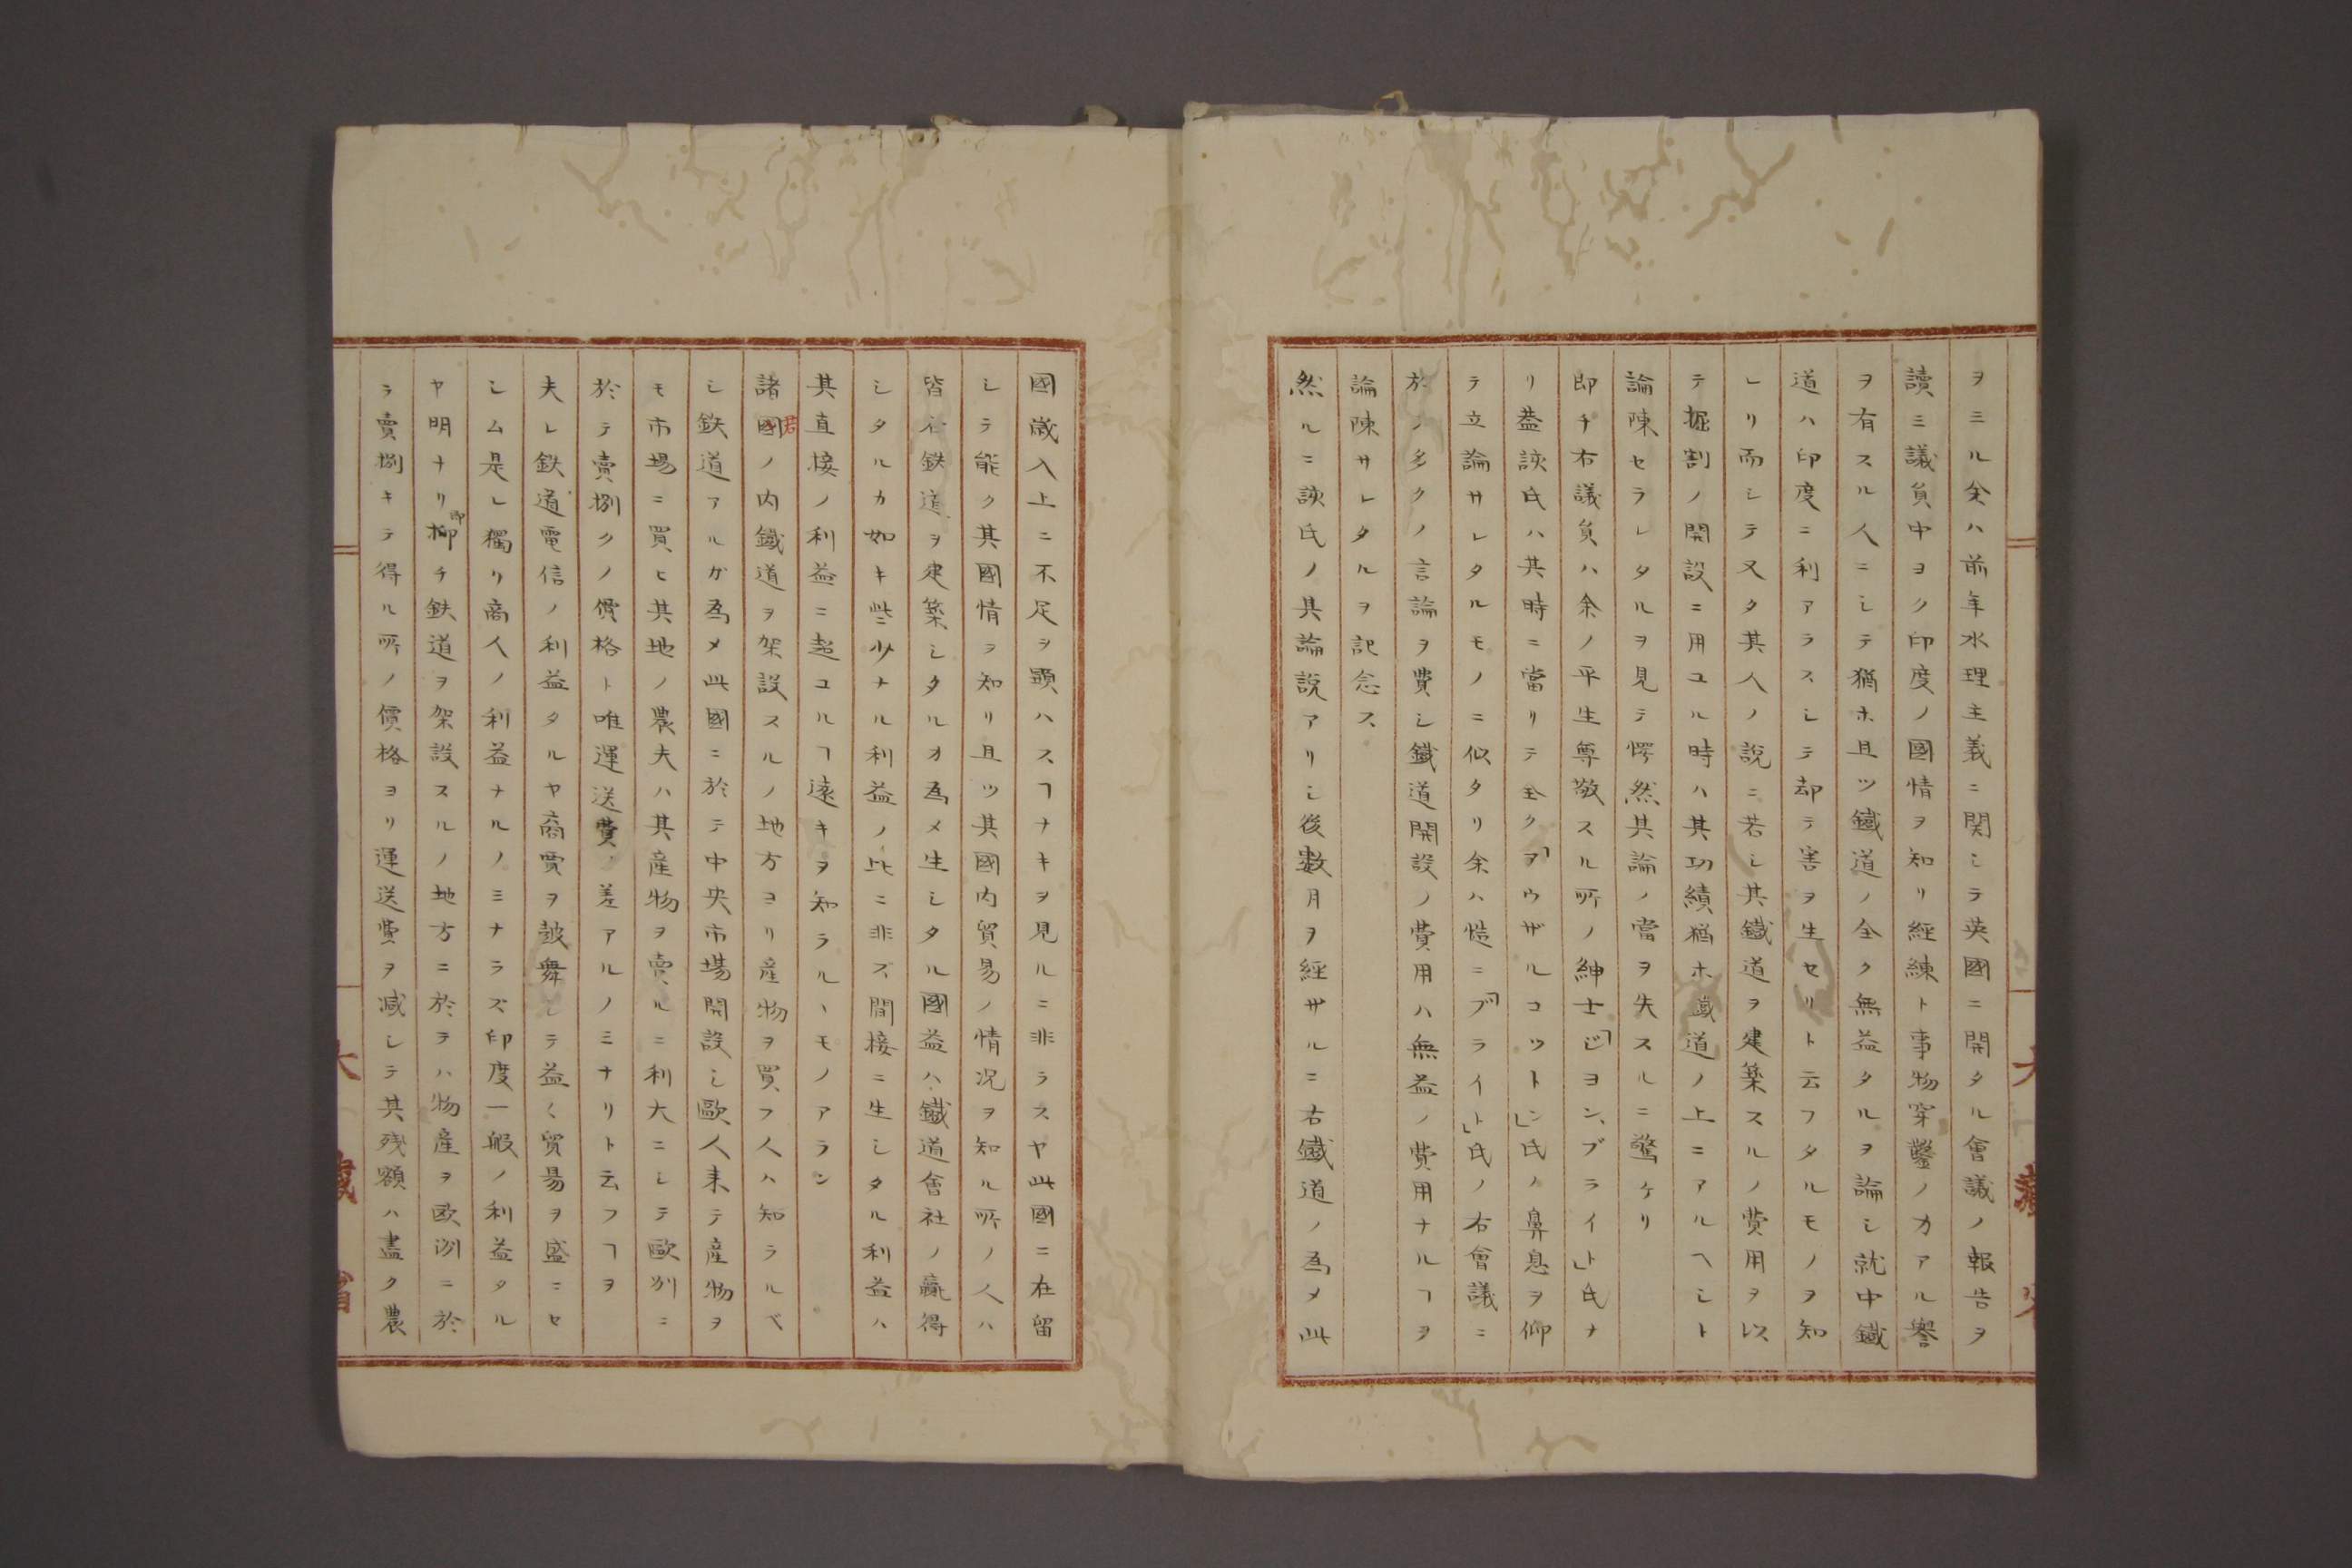 ヲミル余ハ前年水理主義ニ関シテ英國ニ開タル會議ノ報告ヲ
讀ミ議負中ヨク印度ノ國情ヲ知リ經練ト事物穿鑿ノ力アル譽
ヲ有スル人ニシテ猶ホ且ツ鐵道ノ全ク無益タルヲ論シ就中鐵
道ハ印度ニ利アラスシテ却テ害ヲ生セリト云フタルモノヲ知
レリ而シテ又タ其人ノ説ニ若シ其鐵道ヲ建築スルノ費用ヲ以
テ掘割ノ開設ニ用ユル時ハ其功績猶ホ鐵道ノ上ニアルヘシト
論陳セラレタルヲ見テ愕然其論ノ當ヲ失スルニ驚ケリ
即チ右議負ハ余ノ平生尊敬スル所ノ紳士「ジヨン、ブライト」氏ナ
リ葢該氏ハ其時ニ當リテ全ク「ヲウザルコツトン」氏ノ鼻息ヲ仰
テ立論サレタルモノニ似タリ余ハ慥ニ「ブライト」氏ノ右會議ニ
於ノ多クノ言論ヲ費シ鐵道開設ノ費用ハ無益ノ費用ナルヿヲ
論陳サレタルヲ記念ス
然ルニ該氏ノ其論説アリシ後数月ヲ經サルニ右鐵道ノ為メ此
國歳入上ニ不足ヲ顕ハスヿナキヲ見ルニ非ラスヤ此國ニ在留
シテ能ク其國情ヲ知リ且ツ其國内貿易ノ情況ヲ知ル所ノ人ハ
皆右鉄道ヲ建築シタルカ為メ生シタル國益ハ鐵道會社ノ贏得
シタルカ如キ些少ナル利益ノ比ニ非ズ間接ニ生シタル利益ハ
其直接ノ利益ニ超ユルヿ遠キヲ知ラルヽモノアラン
諸國ノ内鐵道ヲ架設スルノ地方ヨリ産物ヲ買フ人ハ知ラルベ
若
シ鉄道アルガ為メ此國ニ於テ中央市場開設シ歐人来テ産物ヲ
モ市場ニ買ヒ其地ノ農夫ハ其産物ヲ賣ルニ利大ニシテ歐州ニ
於テ賣捌クノ價格ト唯運送費ノ差アルノミナリト云フヿヲ
夫レ鉄道電信ノ利益タルヤ商賈ヲ鼓舞シテ益〻貿易ヲ盛ニセ
シム是レ獨リ商人ノ利益ナルノミナラズ印度一般ノ利益タル
ヤ明ナリ柳チ鉄道ヲ架設スルノ地方ニ於ヲハ物産ヲ欧洲ニ於
即
ラ賣捌キテ得ル所ノ價格ヨリ運送費ヲ减シテ其残額ハ盡ク農
大藏省